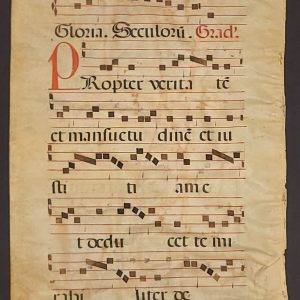 Gloria. Seculorū. Grad'.
PRopter verita tē
et mansuetu dinē et iu
sti ti am e
t dedu cet te mi
rabi liter de